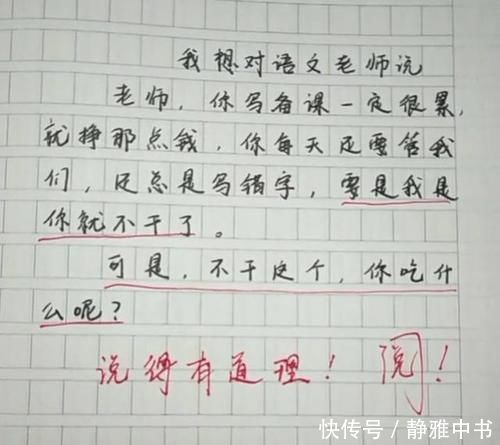 我想对语文老师说
老师，你写备课一定很累，
就挣那点钱，你每天还要管我
们，还总是写错字，要是我是
你就不干了。
可是，不干这个，你吃什
么呢？
说得有道理！阅！
快传号／静雅中书